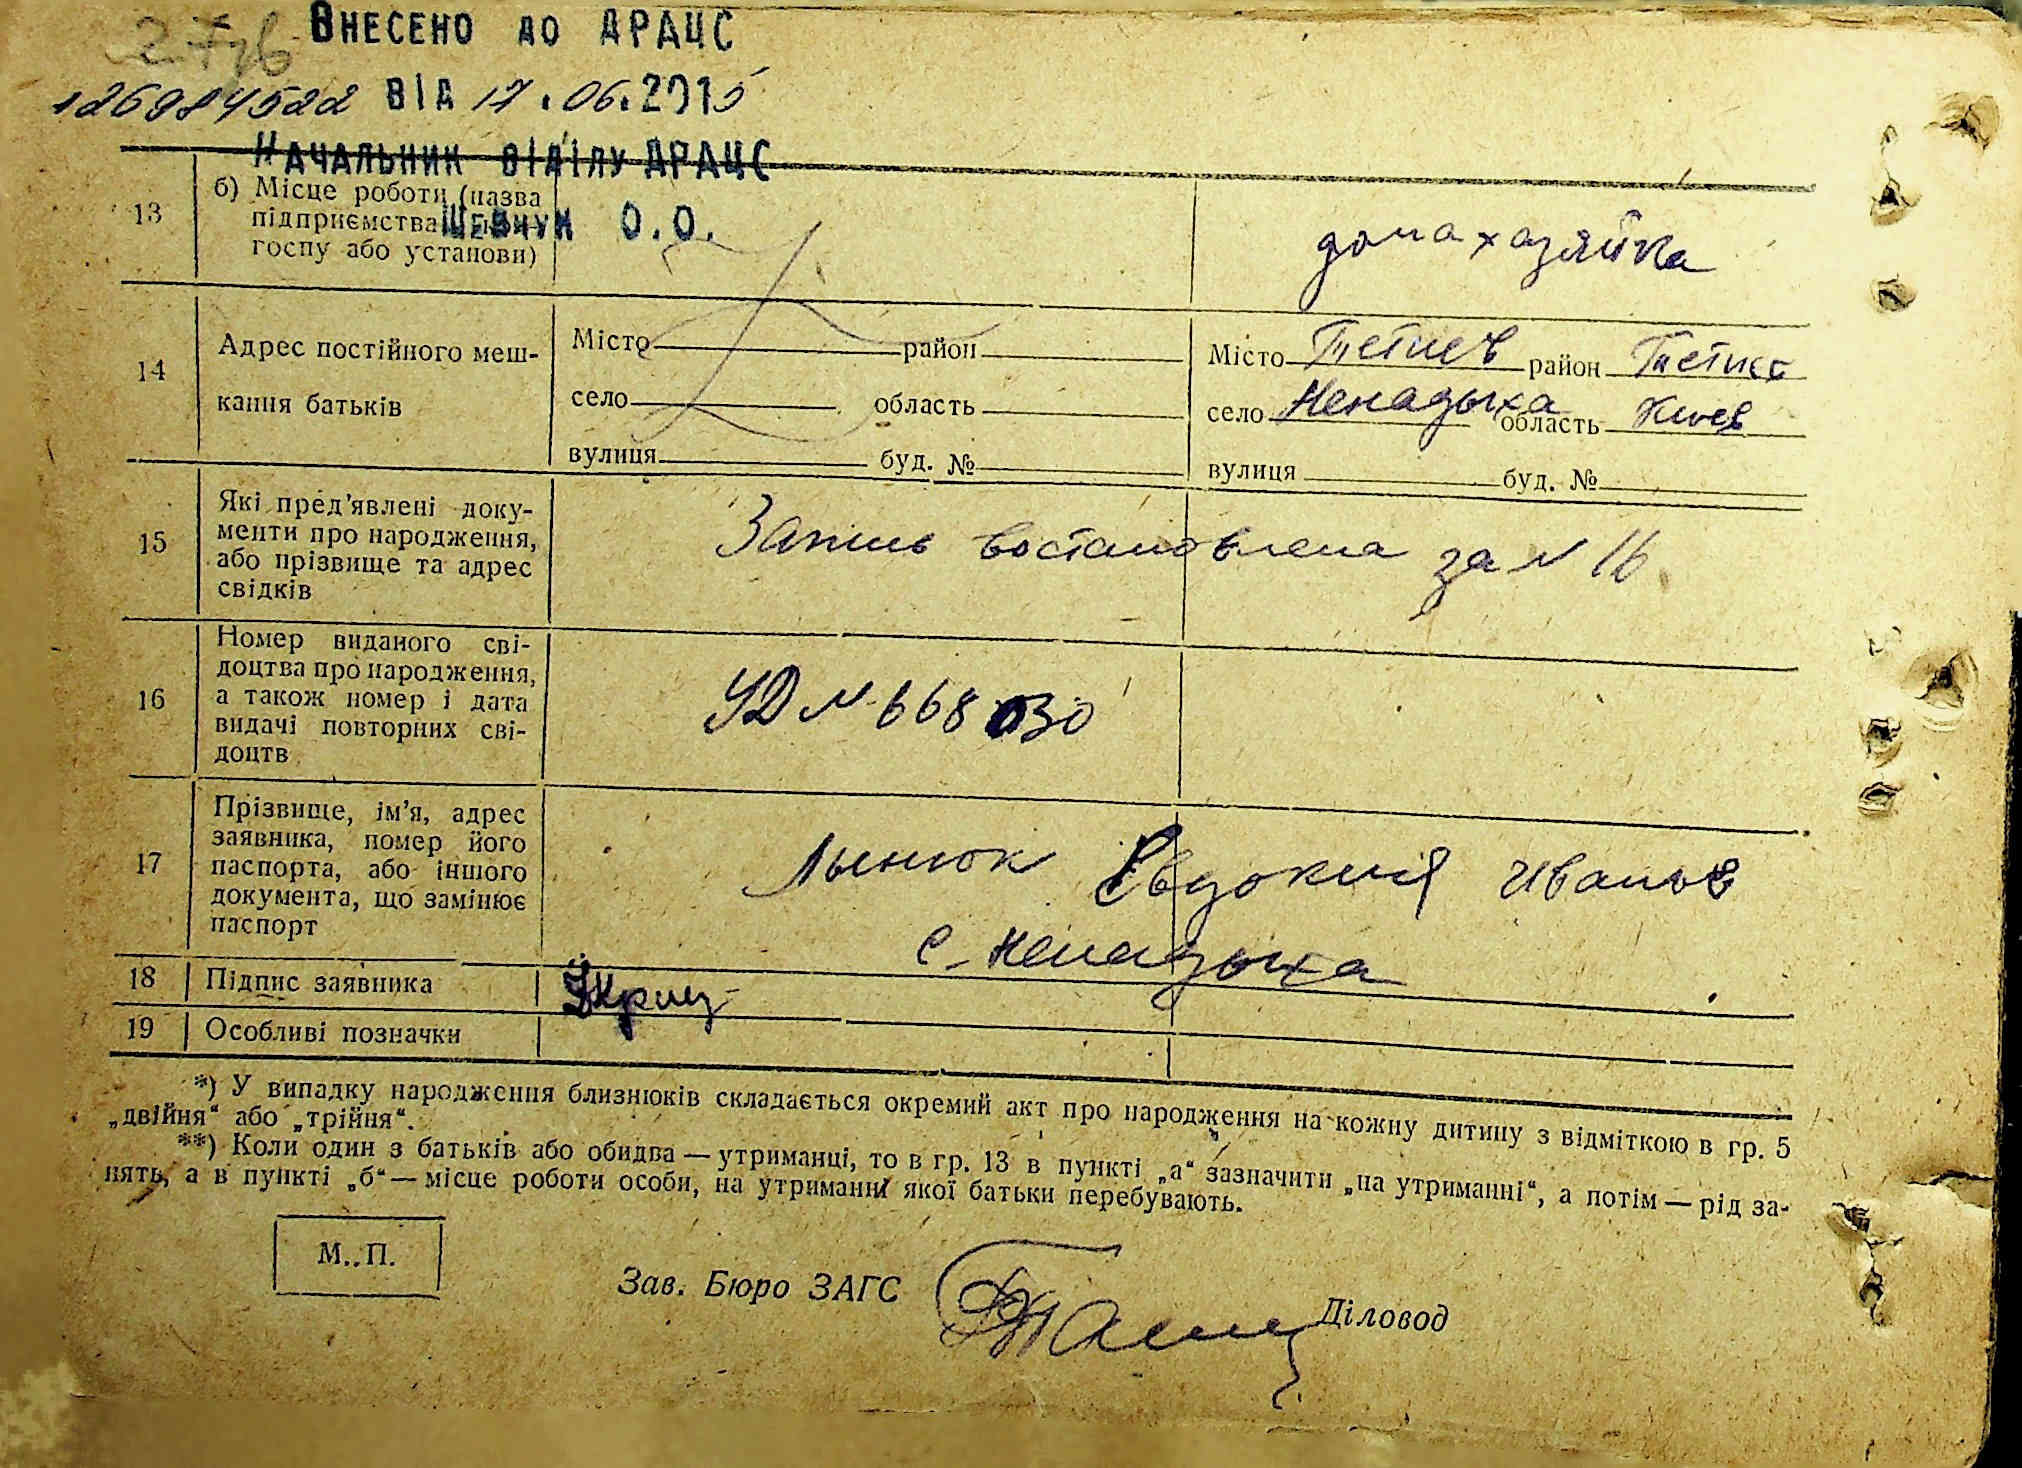 Внесено до ДРАЦС
126984522 від 17.06.2015
Начальник відділу ДРАЦС
Шевчук О.О.
13
б) Місце роботи (назва
підприємства
госпу або установи)
домахазяйка
14
Адрес постійного меш-
кання батьків
Місто район
село область
вулиця буд. №
Місто Тетиев район Тетиев
село Ненадыха область Киев
вулиця буд. №
15
Які пред'явлені доку-
менти про народження,
або прізвище та адрес
свідків
Запись востановлена за N 16
16
Номер виданого сві-
доцтва про народження,
а також номер і дата
видачі повторних сві-
доцтв
УД N 668030
17
Прізвище, ім'я, адрес
заявника, номер його
паспорта, або іншого
документа, що замінює
паспорт
Лынюк Евдокия Иванов
с. Ненадыха
18 Підпис заявника
19 Особливі позначки
*) У випадку народження близнюків складається окремий акт про народження на кожну дитину з відміткою в гр. 5
„двійня“ або „трійня“.
**) Коли один з батьків або обидва — утриманці, то в гр. 13 в пункті „а“ зазначити „на утриманні“, а потім — рід за-
нять, а в пункті „б“ — місце роботи особи, на утриманні якої батьки перебувають.
М. П.
Зав. Бюро ЗАГС
Діловод